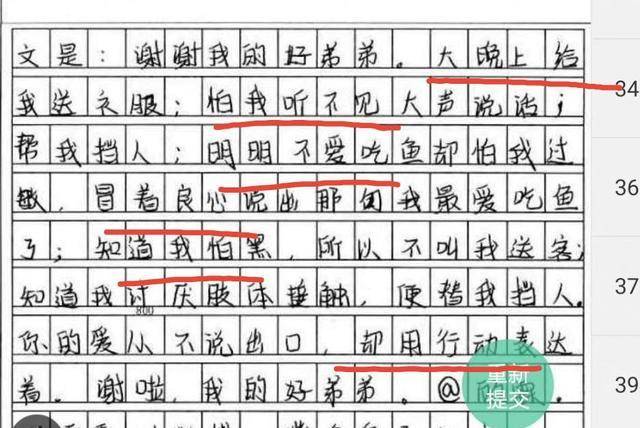 文是：谢谢我的好弟弟。大晚上给
我送衣服；怕我听不见大声说话；
帮我挡人；明明不爱吃鱼却怕我过
敏，冒着良心说出那句我最爱吃鱼
了；知道我怕黑，所以不叫我送客；
知道我讨厌肢体接触，便替我挡人。
800
你的爱从不说出口，却用行动表达
着。谢啦，我的好弟弟。@
重新
提交
34
36
37
39